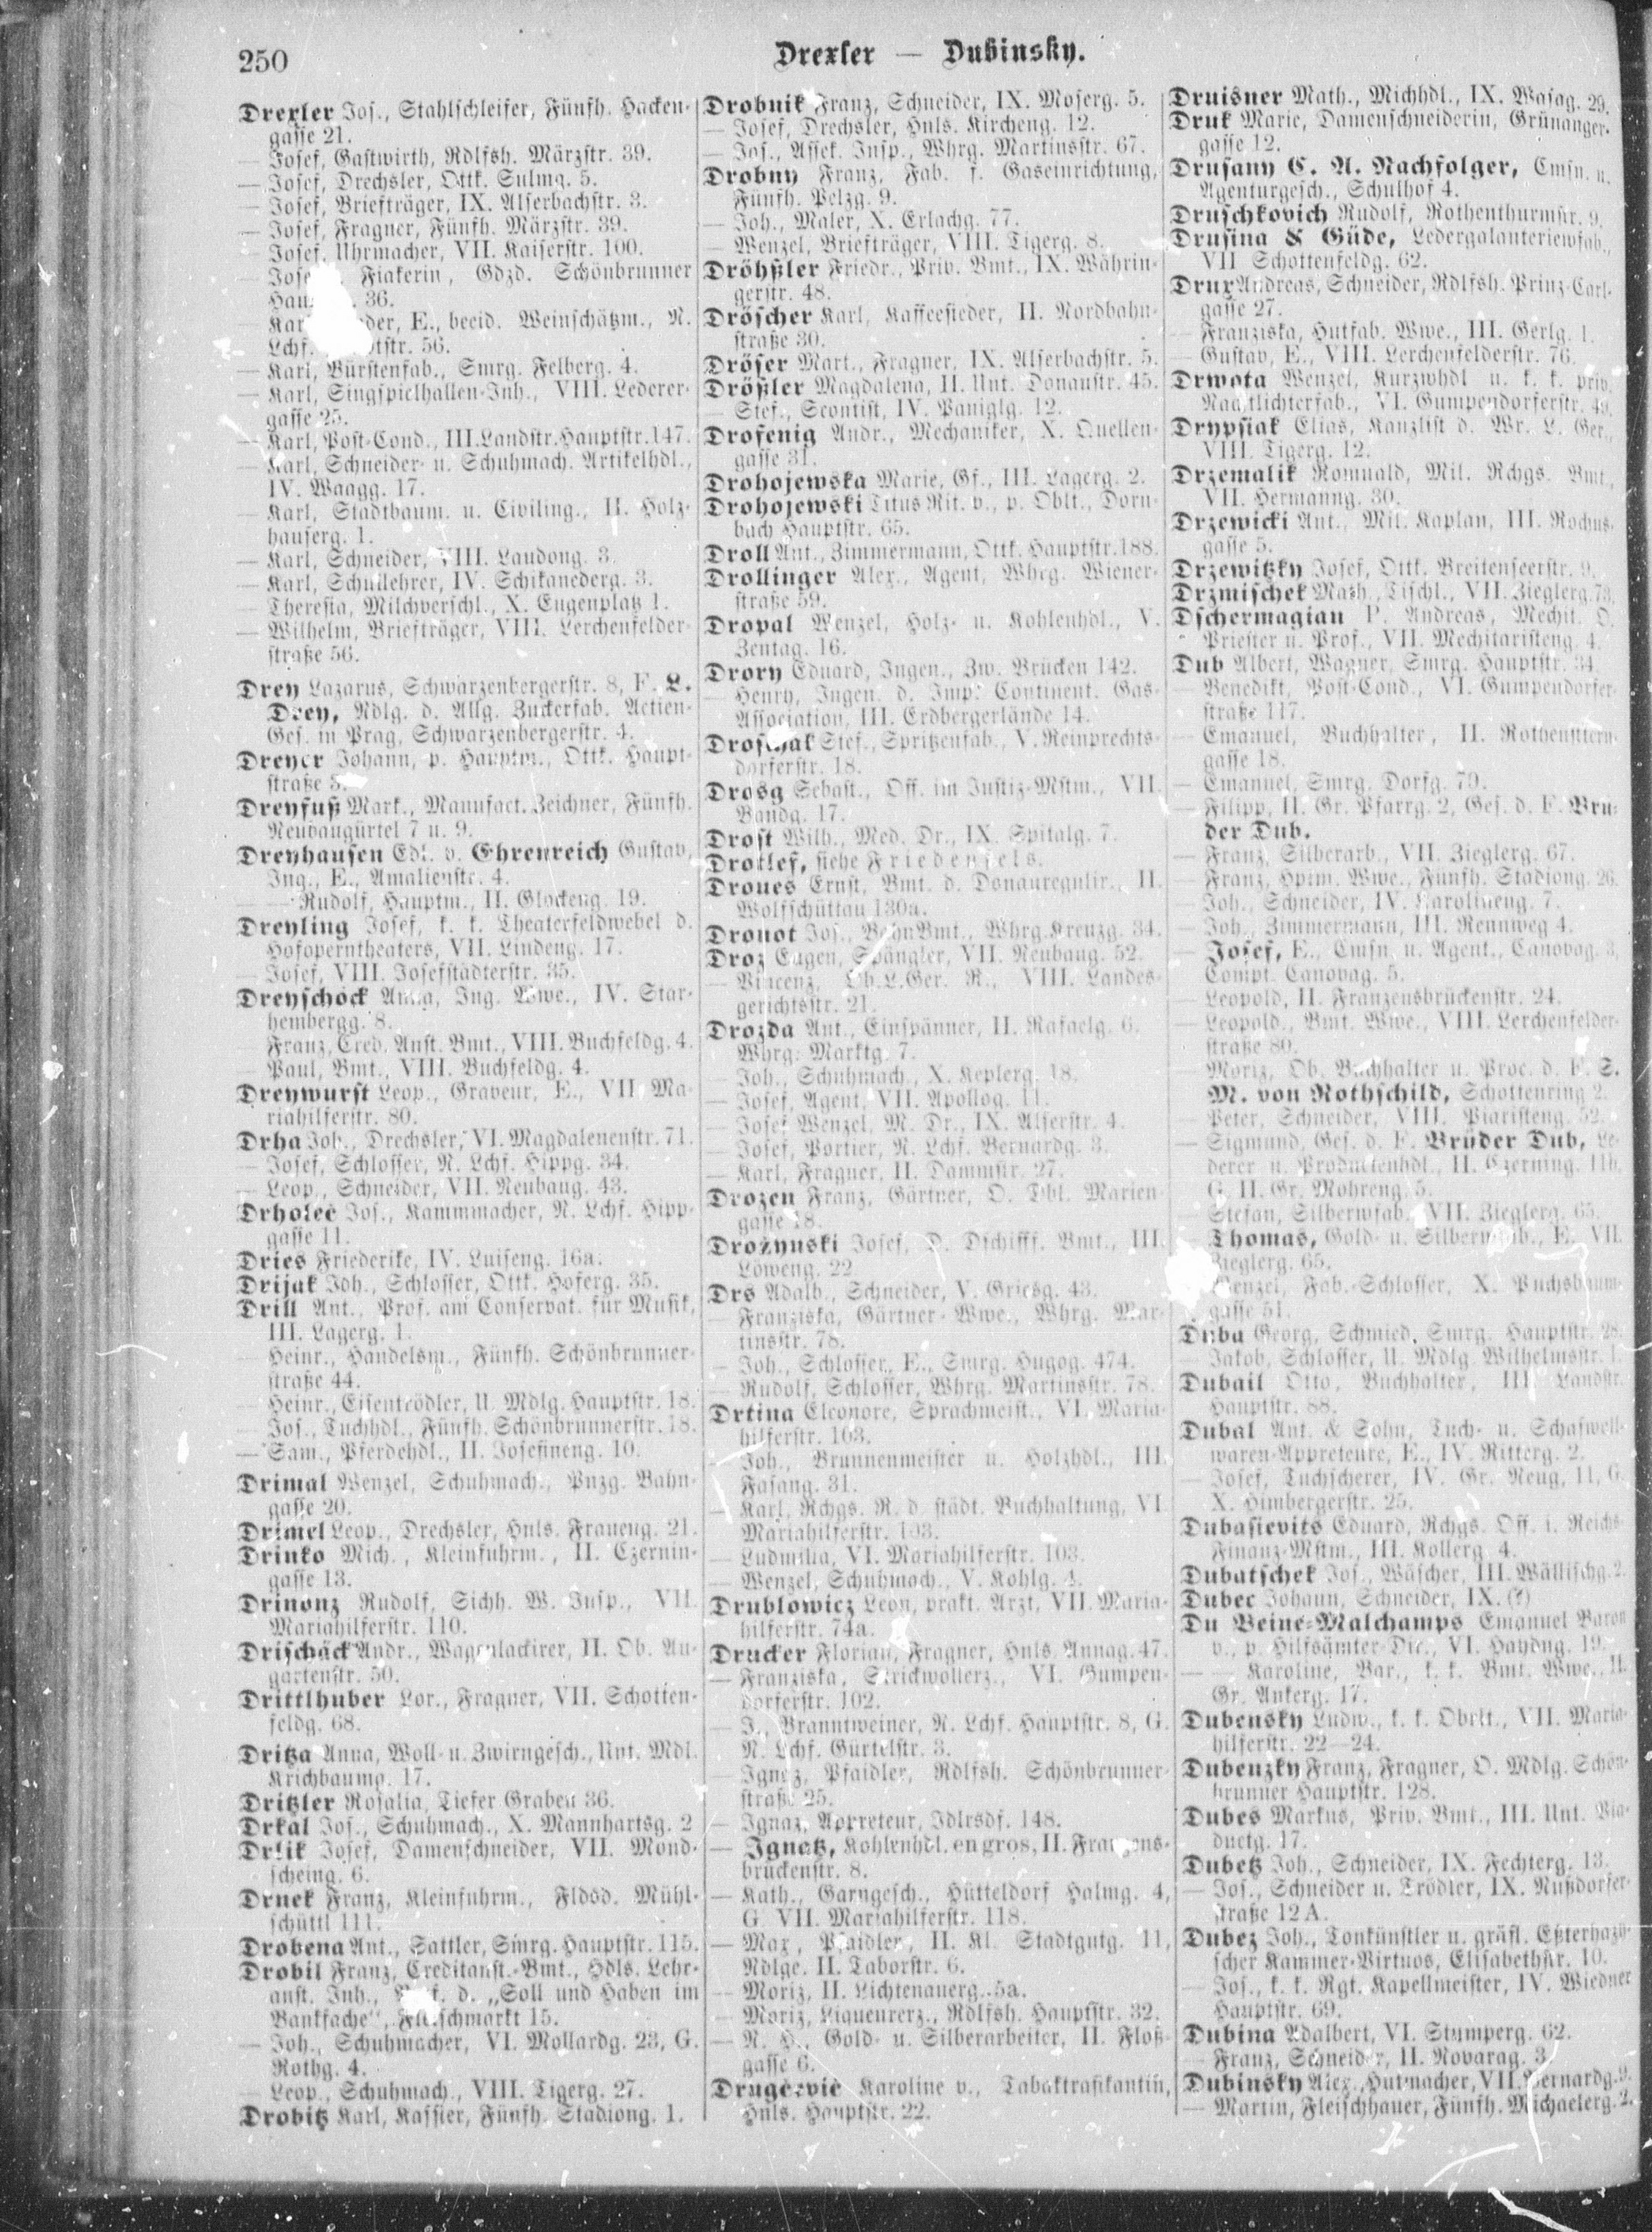 250
Drexler — Dubinsky.
Drexler Jos., Stahlschleifer, Fünfh. Hacken-
gasse 21.
— Josef, Gastwirth, Rdlfsh. Märzstr. 39.
— Josef, Drechsler, Ottk. Sulmg. 5.
— Josef, Briefträger, IX. Alserbachstr. 3.
— Josef, Fragner, Fünfh. Märzstr. 39.
— Josef, Uhrmacher, VII. Kaiserstr. 100.
— Fiakerin, Gdzd. Schönbrunner
36.
E., beeid. Weinschätzm., N.
Lchf. 56.
— Karl, Bürstenfab., Smrg. Felberg. 4.
— Karl, Singspielhallen-Inh., VIII. Lederer-
gasse 25.
— Karl, Post-Cond., III. Landstr. Hauptstr. 147.
— Karl, Schneider- u. Schuhmach. Artikelhdl.,
IV. Waagg. 17.
— Karl, Stadtbaum. u. Civiling., II. Holz-
hauserg. 1.
— Karl, Schneider, VIII. Laudong. 3.
— Karl, Schullehrer, IV. Schikanederg. 3.
— Theresia, Milchverschl., X. Eugenplatz 1.
— Wilhelm, Briefträger, VIII. Lerchenfelder-
straße 56.
Drey Lazarus, Schwarzenbergerstr. 8, F. L.
Drey, Ndlg. d. Allg. Zuckerfab. Actien-
Ges. in Prag, Schwarzenbergerstr. 4.
Dreyer Johann, p. Hauptm., Ottk. Haupt-
straße 5.
Dreyfuß Mark., Manufact. Zeichner, Fünfh.
Neubaugürtel 7 u. 9.
Dreyhausen Edl. v. Ehrenreich Gustav,
Ing., E., Amalienstr. 4.
— — Rudolf, Hauptm., II. Glockeng. 19.
Dreyling Josef, k. k. Theaterfeldwebel d.
Hofoperntheaters, VII. Lindeng. 17.
— Josef, VIII. Josefstädterstr. 35.
Dreyschock Anna, Ing. Wwe., IV. Star-
hembergg. 8.
— Franz, Cred. Anst. Bmt., VIII. Buchfeldg. 4.
— Paul, Bmt., VIII. Buchfeldg. 4.
Dreywurst Leop., Graveur, E., VII. Ma-
riahilferstr. 80.
Drha Joh., Drechsler, VI. Magdalenenstr. 71.
— Josef, Schlosser, N. Lchf. Hippg. 34.
— Leop., Schneider, VII. Neubaug. 43.
Drholec Jos., Kammmacher, N. Lchf. Hipp-
gasse 11.
Dries Friederike, IV. Luiseng. 16a.
Drijak Joh., Schlosser, Ottk. Hoferg. 35.
Drill Ant., Prof. am Conservat. für Musik,
III. Lagerg. 1.
— Heinr., Handelsm., Fünfh. Schönbrunner-
straße 44.
— Heinr., Eisentrödler, U. Mdlg. Hauptstr. 18.
— Jos., Tuchhdl., Fünfh. Schönbrunnerstr. 18.
— Sam., Pferdehdl., II. Josefineng. 10.
Drimal Wenzel, Schuhmach., Pnzg. Bahn-
gasse 20.
Drimel Leop., Drechsler, Hnls. Fraueng. 21.
Drinko Mich., Kleinfuhrm., II. Czernin-
gasse 13.
Drinonz Rudolf, Sichh. W. Insp., VII.
Mariahilferstr. 110.
Drischäck Andr., Wagenlackirer, II. Ob. Au-
gartenstr. 50.
Drittlhuber Lor., Fragner, VII. Schotten-
feldg. 68.
Dritza Anna, Woll- u. Zwirngesch., Unt. Mdl.
Krichbaumg. 17.
Dritzler Rosalia, Tiefer Graben 36.
Drkal Jos., Schuhmach., X. Mannhartsg. 2
Drlik Josef, Damenschneider, VII. Mond-
scheing. 6.
Drnek Franz, Kleinfuhrm., Fldsd. Mühl-
schüttl 111.
Drobena Ant., Sattler, Smrg. Hauptstr. 115.
Drobil Franz, Creditanst.-Bmt., Hdls. Lehr-
anst. Inh., d. „Soll und Haben im
Bankfache“, Fleischmarkt 15.
— Joh., Schuhmacher, VI. Mollardg. 23, G.
Rothg. 4.
— Leop., Schuhmach., VIII. Tigerg. 27.
Drobitz Karl, Kassier, Fünfh. Stadiong. 1.
Drobnik Franz, Schneider, IX. Moserg. 5.
— Josef, Drechsler, Hnls. Kircheng. 12.
— Jos., Assek. Insp., Whrg. Martinsstr. 67.
Drobny Franz, Fab. f. Gaseinrichtung,
Fünfh. Pelzg. 9.
— Joh., Maler, X. Erlachg. 77.
— Wenzel, Briefträger, VIII. Tigerg. 8.
Dröhßler Friedr., Priv. Bmt., IX. Währin-
gerstr. 48.
Dröscher Karl, Kaffeesieder, II. Nordbahn-
straße 30.
Dröser Mart., Fragner, IX. Alserbachstr. 5.
Drößler Magdalena, II. Unt. Donaustr. 45.
— Stef., Scontist, IV. Paniglg. 12.
Drofenig Andr., Mechaniker, X. Quellen-
gasse 31.
Drohojewska Marie, Gf., III. Lagerg. 2.
Drohojewski Titus Rit. v., p. Oblt., Dorn-
bach Hauptstr. 65.
Droll Ant., Zimmermann, Ottk. Hauptstr. 188.
Drollinger Alex., Agent, Whrg. Wiener-
straße 59.
Dropal Wenzel, Holz- u. Kohlenhdl., V.
Zentag. 16.
Drory Eduard, Ingen., Zw. Brücken 142.
— Henry, Ingen. d. Imp. Continent. Gas-
Association, III. Erdbergerlände 14.
Droschak Stef., Spritzenfab., V. Reinprechts-
dorferstr. 18.
Drosg Sebast., Off. im Justiz-Mstm., VII.
Bandg. 17.
Drost Wilh., Med. Dr., IX. Spitalg. 7.
Drotlef, siehe Friedenfels.
Droues Ernst, Bmt. d. Donauregulir., II.
Wolfschüttau 130a.
Drouot Jos., BahnBmt., Whrg. Kreuzg. 34.
Droz Eugen, Spängler, VII. Neubaug. 52.
— Vincenz, Ob. L. Ger. R., VIII. Landes-
gerichtsstr. 21.
Drozda Ant., Einspänner, II. Rafaelg. 6.
Whrg. Marktg. 7.
— Joh., Schuhmach., X. Keplerg. 18.
— Josef, Agent, VII. Apollog. 11.
— Josef Wenzel, M. Dr., IX. Alserstr. 4.
— Josef, Portier, N. Lchf. Bernardg. 3.
— Karl, Fragner, II. Dammstr. 27.
Drozen Franz, Gärtner, O. Dbl. Marien-
gasse 18.
Drozynski Josef, D. Dschifff. Bmt., III.
Löweng. 22
Drs Adalb., Schneider, V. Griesg. 43.
— Franziska, Gärtner-Wwe., Whrg. Mar-
tinsstr. 78.
— Joh., Schlosser, E., Smrg. Hugog. 474.
— Rudolf, Schlosser, Whrg. Martinsstr. 78.
Drtina Eleonore, Sprachmeist., VI. Maria-
hilferstr. 103.
— Joh., Brunnenmeister u. Holzhdl., III.
Fasang. 31.
— Karl, Rchgs. R. d. städt. Buchhaltung, VI.
Mariahilferstr. 103.
— Ludmilla, VI. Mariahilferstr. 103.
— Wenzel, Schuhmach., V. Kohlg. 4.
Drublowicz Leon, prakt. Arzt, VII. Maria-
hilferstr. 74a.
Drucker Florian, Fragner, Hnls. Annag. 47.
— Franziska, Strickwollerz., VI. Gumpen-
dorferstr. 102.
— J., Branntweiner, N. Lchf. Hauptstr. 8, G.
N. Lchf. Gürtelstr. 3.
— Ignaz, Pfaidler, Rdlfsh. Schönbrunner-
straße 25.
— Ignaz, Appreteur, Jdlrsdf. 148.
— Ignatz, Kohlenhdl. en gros, II. Franzens-
brückenstr. 8.
— Kath., Garngesch., Hütteldorf Halmg. 4,
G. VII. Mariahilferstr. 118.
— Max, Pfaidler, II. Kl. Stadtgutg. 11,
Ndlge. II. Taborstr. 6.
— Moriz, II. Lichtenauerg. 5a.
— Moriz, Liqueurerz., Rdlfsh. Hauptstr. 32.
— N. H., Gold- u. Silberarbeiter, II. Floß-
gasse 6.
Drugčevic Karoline v., Tabaktrafikantin,
Hnls. Hauptstr. 22.
Druisner Math., Michhdl., IX. Wasag. 29.
Druk Marie, Damenschneiderin, Grünanger-
gasse 12.
Drusany C. A. Nachfolger, Cmsn. u.
Agenturgesch., Schulhof 4.
Druschkovich Rudolf, Rothenthurmstr. 9.
Drusina & Güde, Ledergalanteriewfab.,
VII Schottenfeldg. 62.
Drux Andreas, Schneider, Rdlfsh. Prinz-Carl-
gasse 27.
— Franziska, Hutfab. Wwe., III. Gerlg. 1.
— Gustav, E., VIII. Lerchenfelderstr. 76.
Drwota Wenzel, Kurzwhdl u. k. k. priv.
Nachtlichterfab., VI. Gumpendorferstr. 49.
Drypsiak Elias, Kanzlist d. Wr. L. Ger.,
VIII. Tigerg. 12.
Drzemalik Romuald, Mil. Rchgs. Bmt.,
VII. Hermanng. 30.
Drzewicki Ant., Mil. Kaplan, III. Rochus-
gasse 5.
Drzewitzky Josef, Ottk. Breitenseerstr. 9.
Drzmischek Math., Tischl., VII. Zieglerg. 73.
Dschermagian P. Andreas, Mechit. O.
Priester u. Prof., VII. Mechitaristeng. 4.
Dub Albert, Wagner, Smrg. Hauptstr. 34.
— Benedikt, Post-Cond., VI. Gumpendorfer-
straße 117.
— Emanuel, Buchhalter, II. Rothenstern-
gasse 18.
— Emanuel, Smrg. Dorfg. 79.
— Filipp, II. Gr. Pfarrg. 2, Ges. d. F. Bru-
der Dub.
— Franz, Silberarb., VII. Zieglerg. 67.
— Franz, Hptm. Wwe., Fünfh. Stadiong. 26.
— Joh., Schneider, IV. Karolineng. 7.
— Joh., Zimmermann, III. Rennweg 4.
— Josef, E., Cmsn. u. Agent., Canovag. 3,
Compt. Canovag. 5.
— Leopold, II. Franzensbrückenstr. 24.
— Leopold., Bmt. Wwe., VIII. Lerchenfelder-
straße 80.
— Moriz, Ob. Buchhalter u. Proc. d. F. S.
M. von Rothschild, Schottenring 2.
— Peter, Schneider, VIII. Piaristeng. 52.
— Sigmund, Ges. d. F. Brüder Dub, Le-
derer u. Productenhdl., II. Czerning. 11b,
G. II. Gr. Mohreng. 5.
— Stefan, Silberwfab., VII. Zieglerg. 65.
— Thomas, Gold- u. Silberwfab., E., VII.
Zieglerg. 65.
— Wenzel, Fab.-Schlosser, X. Puchsbaum-
gasse 51.
Duba Georg, Schmied, Smrg. Hauptstr. 28.
— Jakob, Schlosser, U. Mdlg. Wilhelmsstr. 1.
Dubail Otto, Buchhalter, III. Landstr.
Hauptstr. 88.
Dubal Ant. & Sohn, Tuch- u. Schafwoll-
waren-Appreteure, E., IV. Ritterg. 2.
— Josef, Tuchscherer, IV. Gr. Neug. 11, G.
X. Himbergerstr. 25.
Dubasievits Eduard, Rchgs. Off. i. Reichs-
Finanz-Mstm., III. Kollerg. 4.
Dubatschek Jos., Wäscher, III. Wällischg. 2.
Dubec Johann, Schneider, IX. (?)
Du Beine-Malchamps Emanuel Baron
v., p. Hilfsämter-Dir., VI. Haydng. 19.
— — Karoline, Bar., k. k. Bmt. Wwe., II.
Gr. Ankerg. 17.
Dubensky Ludw., k. k. Obrlt., VII. Maria-
hilferstr. 22—24.
Dubenzky Franz, Fragner, O. Mdlg. Schön-
brunner Hauptstr. 128.
Dubes Markus, Priv. Bmt., III. Unt. Via-
ductg. 17.
Dubetz Joh., Schneider, IX. Fechterg. 13.
— Jos., Schneider u. Trödler, IX. Nußdorfer-
straße 12 A.
Dubez Joh., Tonkünstler u. gräfl. Eßterhazy-
scher Kammer-Virtuos, Elisabethstr. 10.
— Jos., k. k. Rgt. Kapellmeister, IV. Wiedner
Hauptstr. 69.
Dubina Adalbert, VI. Stumperg. 62.
— Franz, Schneider, II. Novarag. 3.
Dubinsky Alex., Hutmacher, VII. Bernardg. 9.
— Martin, Fleischhauer, Fünfh. Michaelerg. 2.